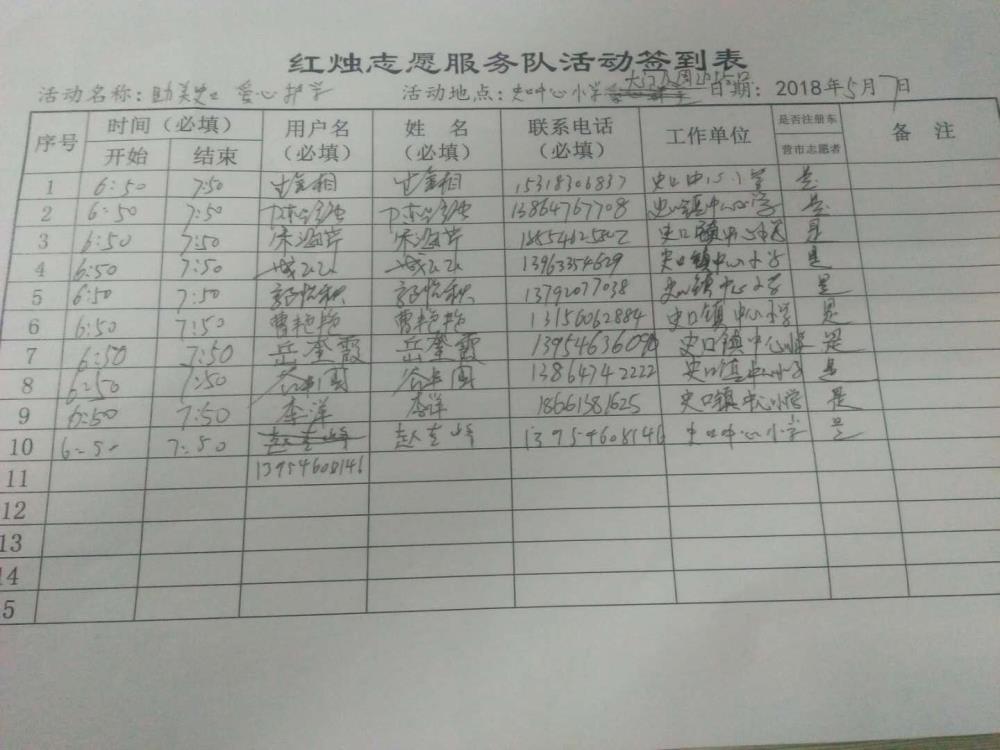 红烛志愿服务队活动签到表
活动名称：助美史口 爱心护学 活动地点：史口中心小学大门及周边路口 日期：2018年5月7日
序号 时间（必填） 用户名（必填） 姓 名（必填） 联系电话（必填） 工作单位 是否注册东营市志愿者 备 注
开始 结束
1 6:50 7:50 15318306837 史口中心小学 是
2 6:50 7:50 13864767708 史口镇中心小学 是
3 6:50 7:50 史口镇中心小学 是
4 6:50 7:50 13963354629 史口镇中心小学 是
5 6:50 7:50 13792077038 史口镇中心小学 是
6 6:50 7:50 曹艳艳 曹艳艳 13156062884 史口镇中心小学 是
7 6:50 7:50 岳奎霞 岳奎霞 史口镇中心小学 是
8 6:50 7:50 13864742222 史口镇中心小学 是
9 6:50 7:50 李洋 李洋 18661381625 史口镇中心小学 是
10 6:50 7:50 13954608146 史口中心小学 是
11 13954608146
12
13
14
5